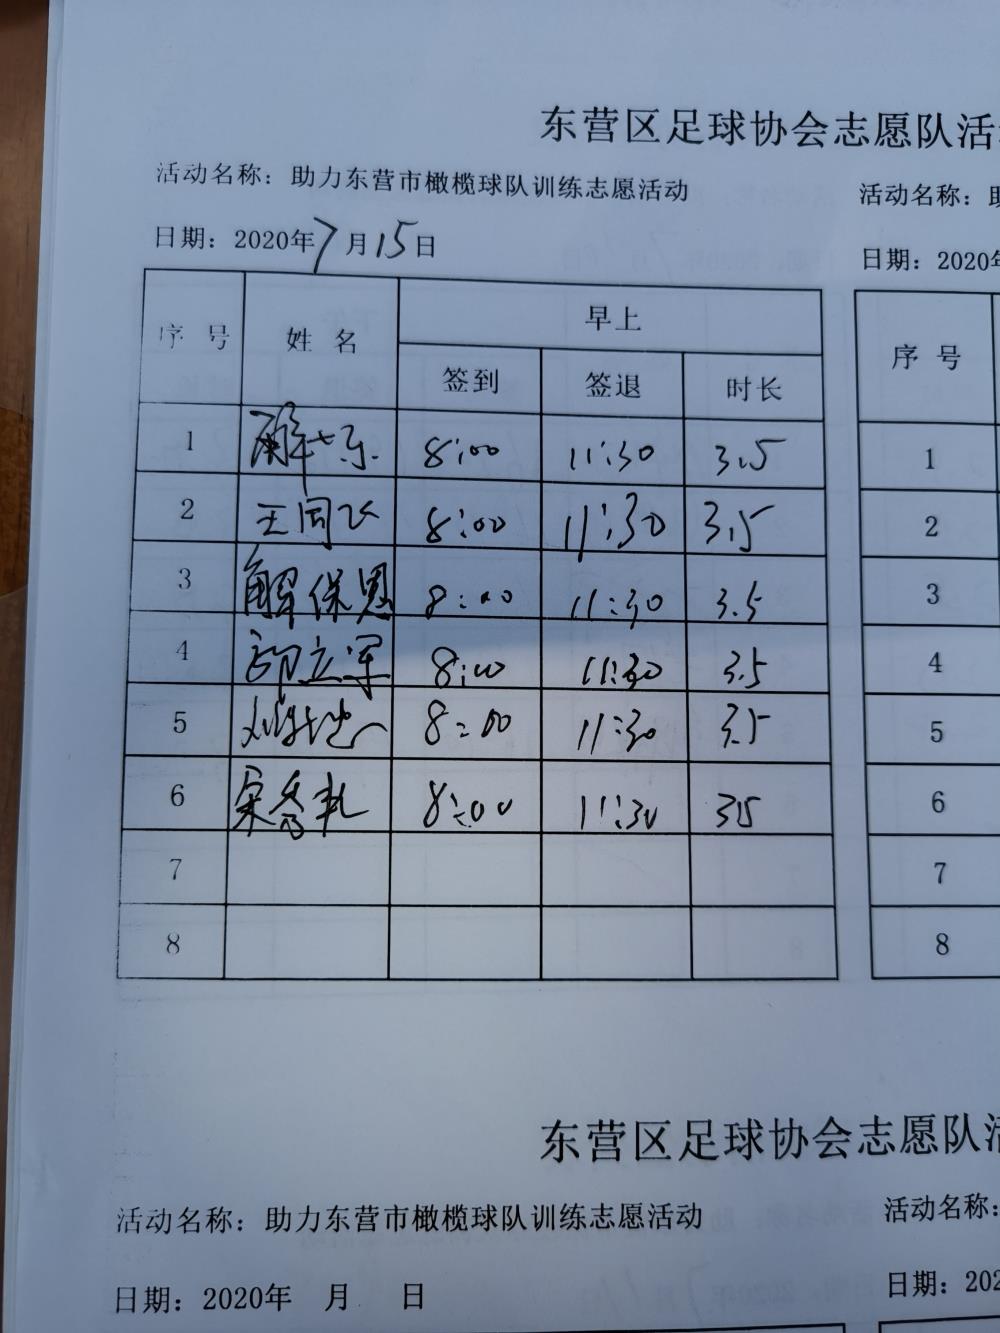 东营区足球协会志愿队活
活动名称：助力东营市橄榄球队训练志愿活动
活动名称：助
日期：2020年7月15日
日期：2020年
序号 姓名 早上
签到 签退 时长
序号
1 8:00 11:30 3.5
1
2 王同飞 8:00 11:30 3.5
2
3 解保恩 8:00 11:30 3.5
3
4 邵立军 8:00 11:30 3.5
4
5 8:00 11:30 3.5
5
6 8:00 11:30 35
6
7
7
8
8
东营区足球协会志愿队活
活动名称：助力东营市橄榄球队训练志愿活动
活动名称：
日期：2020年 月 日
日期：202